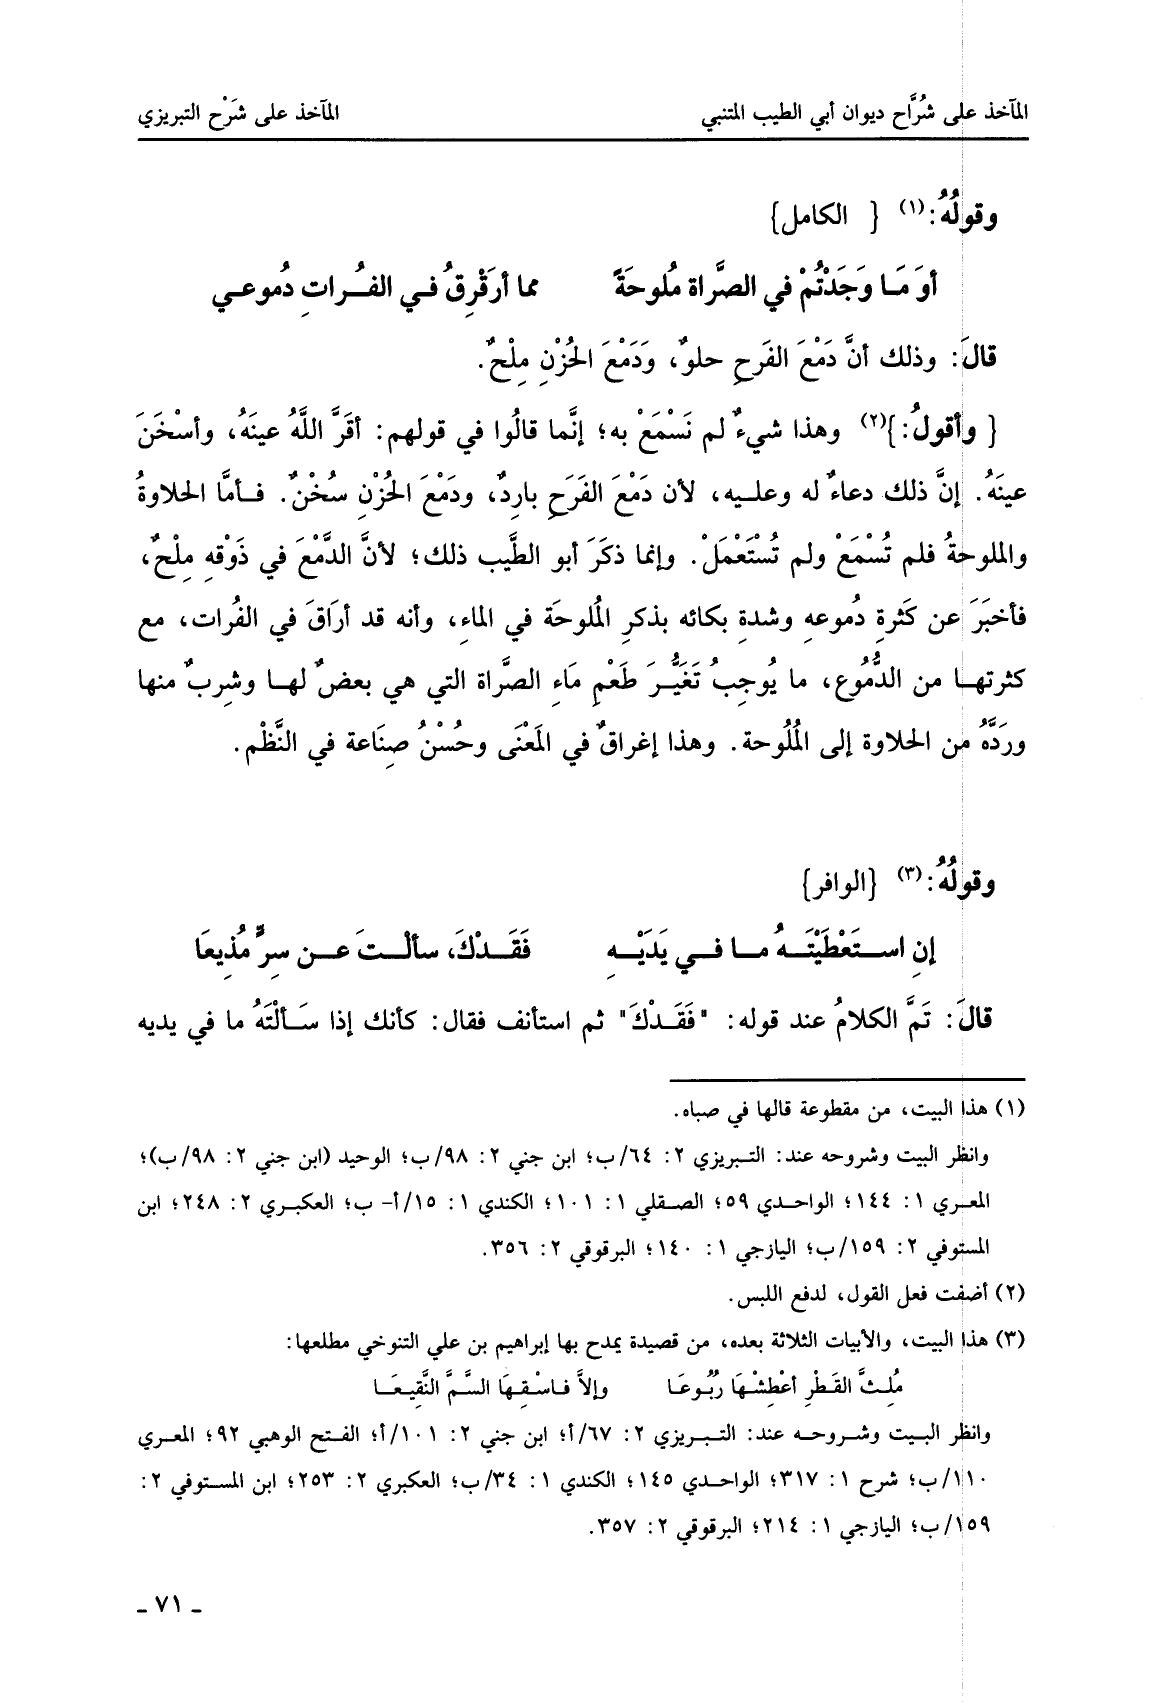 المآخذ على شُرَّاح ديوان أبي الطيب المتنبي المآخذ على شَرْح التبريزي
وقولُهُ:(١) { الكامل}
أوَ مَـا وَجَدْتُمْ في الصَّراة مُلوحَةً مما أرَقْرِقُ فـي الفُـراتِ دُموعـي
قالَ: وذلك أنَّ دَمْعَ الفَرحِ حلوٌ، وَدَمْعَ الحُزْنِ مِلْحٌ.
{ وأقولُ:}(٢) وهذا شيءٌ لم نَسْمَعْ به؛ إنَّما قالُوا في قولهم: أقَرَّ اللَّهُ عينَهُ، وأسْخَنَ
عينَهُ. إنَّ ذلك دعاءٌ له وعلـيه، لأن دَمْعَ الفَرَحِ باردٌ، ودَمْعَ الحُزْنِ سُخْنٌ. فـأمَّا الحلاوةُ
والملوحةُ فلم تُسْمَعْ ولم تُسْتَعْمَلْ. وإنما ذكَرَ أبو الطَّيب ذلك؛ لأنَّ الدَّمْعَ في ذَوْقهِ مِلْحٌ،
فأخبَرَ عن كَثرةِ دُموعهِ وشدةِ بكائه بذكرِ المُلوحَة في الماءِ، وأنه قد أرَاقَ في الفُرات، مع
كثرتهـا من الدُّمُوع، ما يُوجِبُ تَغَيُّـرَ طَعْمِ مَاءِ الصَّراة التي هي بعضٌ لهـا وشربٌ منها
ورَدَّهُ من الحلاوة إلى المُلُوحة. وهذا إغراقٌ في المَعْنَى وحُسْنُ صِنَاعة في النَّظْم.
وقولُهُ:(٣) {الوافر}
إنِ اسـتَعْطَيْتَـهُ مـا فـي يَدَيْـهِ فَقَـدْكَ، سألْـتَ عـن سِرٍّ مُذيعَا
قالَ: تَمَّ الكلامُ عند قوله: "فَقَـدْكَ" ثم استأنف فقال: كأنك إذا سَـألْتَهُ ما في يديه
(١) هذا البيت، من مقطوعة قالها في صباه.
وانظر البيت وشروحه عند: التـبريزي ٢: ٦٤/ب؛ ابن جني ٢: ٩٨/ب؛ الوحيد (ابن جني ٢: ٩٨/ب)؛
المعـري ١: ١٤٤؛ الواحـدي ٥٩؛ الصـقلي ١: ١٠١؛ الكندي ١: ١٥/أ- ب؛ العكبـري ٢: ٢٤٨؛ ابن
المستوفي ٢: ١٥٩/ب؛ اليازجي ١: ١٤٠؛ البرقوقي ٢: ٣٥٦.
(٢) أضفت فعل القول، لدفع اللبس.
(٣) هذا البيت، والأبيات الثلاثة بعده، من قصيدة يمدح بها إبراهيم بن علي التنوخي مطلعها:
مُلِـثَّ القَـطْرِ أعْطِشْـهَا رُبُـوعَـا وإلاَّ فـاسْـقِـهَا السَّـمَّ النَّقِيـعَـا
وانظر البـيت وشـروحـه عند: التـبـريزي ٢: ٦٧/أ؛ ابن جني ٢: ١٠١/أ؛ الفـتح الوهبي ٩٢؛ المعـري
١١٠/ب؛ شرح ١: ٣١٧؛ الواحـدي ١٤٥؛ الكندي ١: ٣٤/ب؛ العكبري ٢: ٢٥٣؛ ابن المسـتوفي ٢:
١٥٩/ب؛ اليازجي ١: ٢١٤؛ البرقوقي ٢: ٣٥٧.
ـ ٧١ ـ